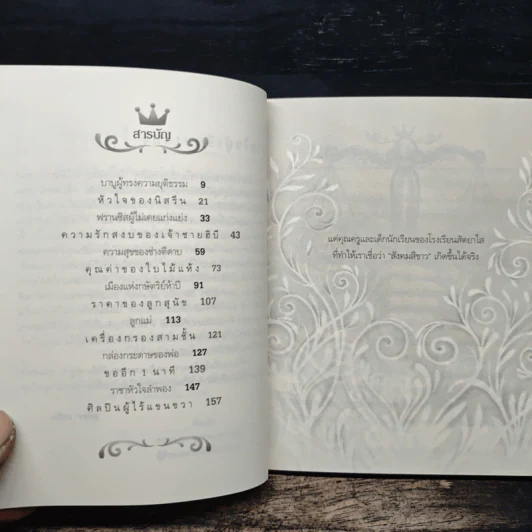 สารบัญ
บาบูผู้ทรงความยุติธรรม 9
หัวใจของนิสรีน 21
ฟรานซิสผู้ไม่เคยแก่งแย่ง 33
ความรักสงบของเจ้าชายฮิบี 43
ความสุขของช่างตีดาบ 59
คุณค่าของใบไม้แห้ง 73
เมืองแห่งกษัตริย์ห้าปี 91
ราคาของลูกสุนัข 107
ลูกแม่ 113
เครื่องกรองสามชั้น 121
กล่องกระดาษของพ่อ 127
ขออีก 1 นาที 139
ราชาหัวใจลำพอง 147
ศิลปินผู้ไร้แขนขวา 157
แด่คุณครูและเด็กนักเรียนของโรงเรียนสัตยาไส
ที่ทำให้เราเชื่อว่า "สังคมสีขาว" เกิดขึ้นได้จริง